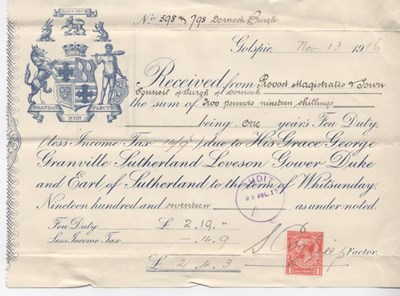 No 598 & 798 Dornoch Burgh
Golspie Nov 13 1916
Received from Provost Magistrates & Town
Council of Burgh of Dornoch
the sum of Two pounds nineteen shillings
being one year's Feu Duty
(less Income Tax ) due to His Grace George
Granville Sutherland Leveson Gower Duke
and Earl of Sutherland to the term of Whitsunday
Nineteen hundred and seventeen as under noted.
Feu Duty £ 2.19.-
Less Income Tax -.14.9
£ 2.4.3
Factor.
AUDIT